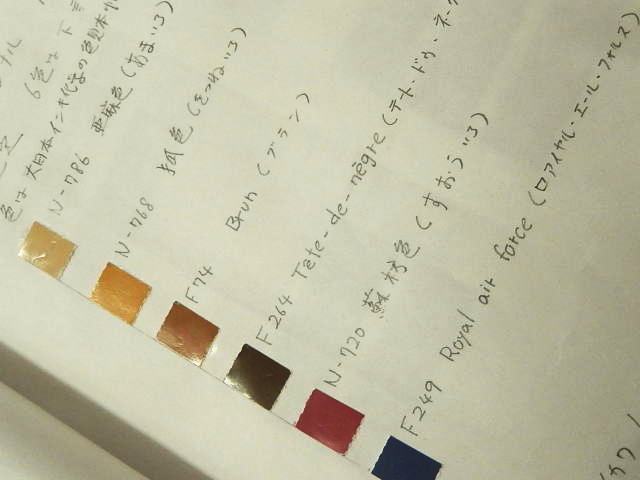 6色は下
色は大日本インキ化学の色見本
N-786 亜麻色(あまいろ)
N-768 狐色(きつねいろ)
F74 Brun (ブラン)
F264 Tête-de-nègre (テート・ドゥ・ネー
N-720 蘇枋色(すおういろ)
F249 Royal air force (ロアイヤル・エール・フォルス)